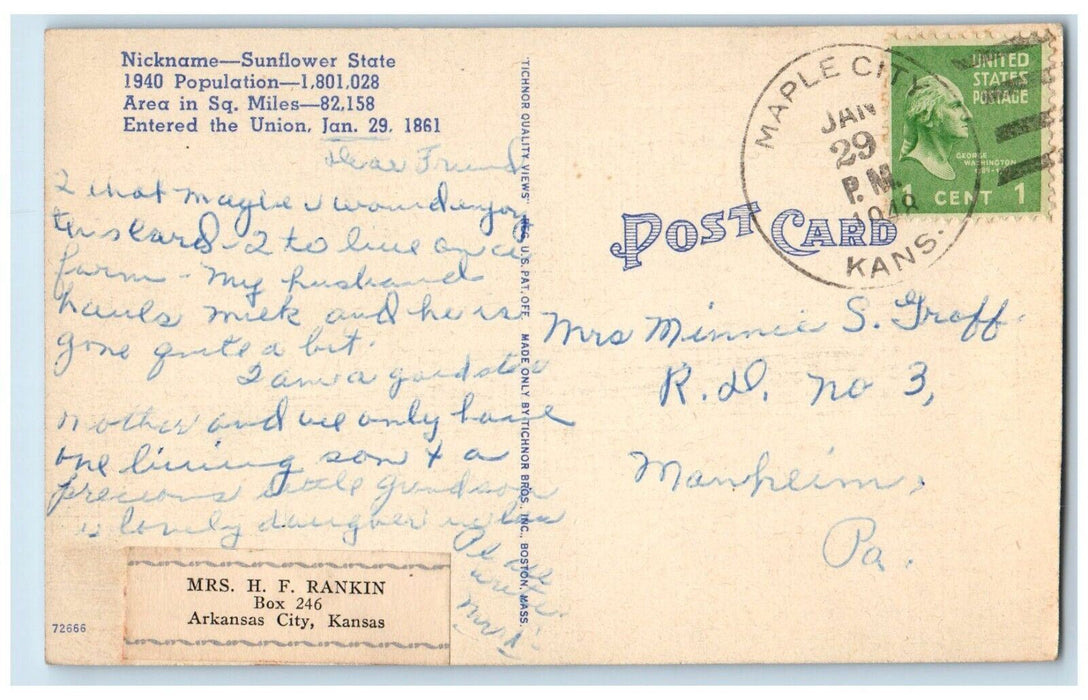 Nickname—Sunflower State
1940 Population—1,801,028
Area in Sq. Miles—82,158
Entered the Union, Jan. 29, 1861
Dear Friend
I that maybe I would enjoy
this card - I to live on a
farm - My husband
hauls milk and he is
gone quite a bit.
I am a gold star
mother and we only have
one living son & a
precious little grandson
& lovely daugher in law
Please
write.
Mrs
MRS. H. F. RANKIN
Box 246
Arkansas City, Kansas
72666
"TICHNOR QUALITY VIEWS" REG. U. S. PAT. OFF. MADE ONLY BY TICHNOR BROS., INC., BOSTON, MASS.
MAPLE CITY
JAN
29
P.M.
1948
KANS.
UNITED
STATES
POSTAGE
GEORGE
WASHINGTON
1 CENT 1
POST CARD
Mrs Minnie S. Groff
R.D. no 3,
Manheim,
Pa.